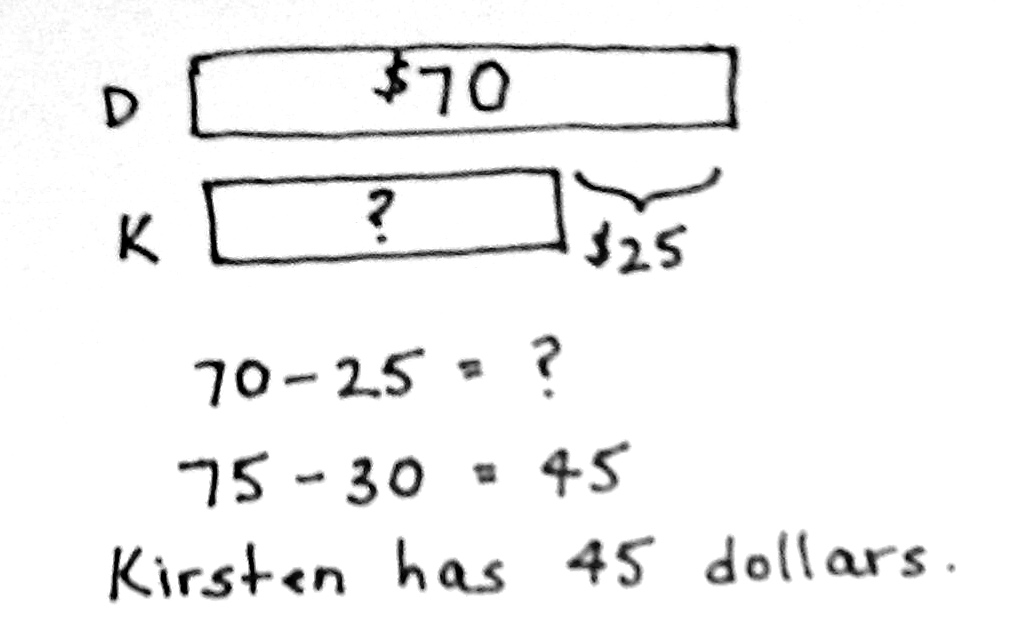 D $70
K ? $25
70 - 25 = ?
75 - 30 = 45
Kirsten has 45 dollars.